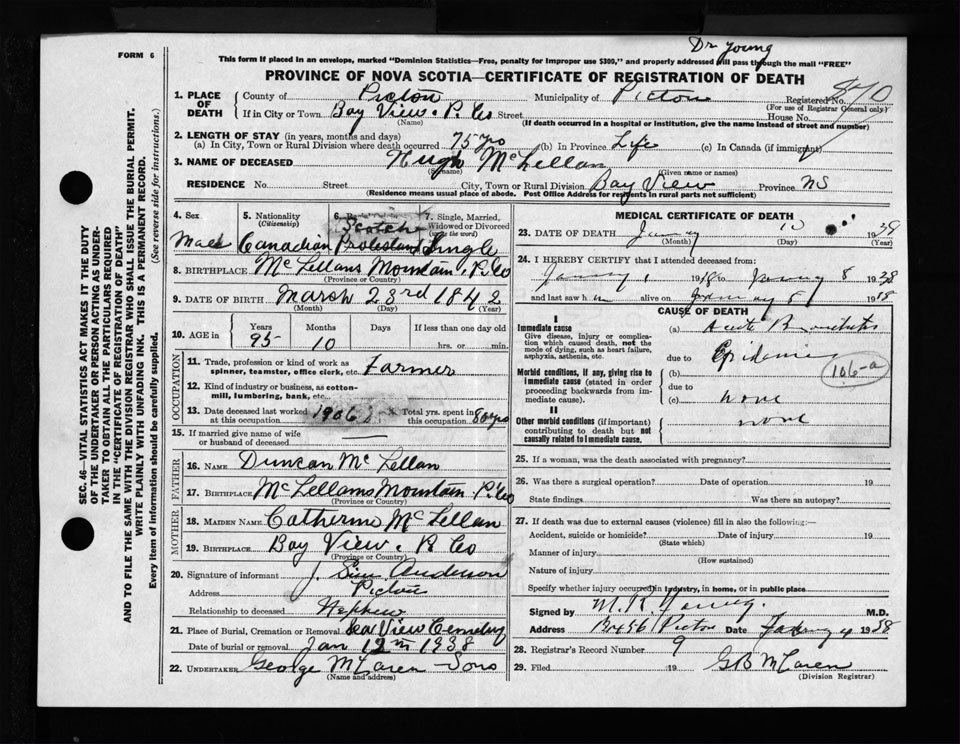 Dr Young
FORM 6
This form if placed in an envelope, marked "Dominion Statistics—Free, penalty for improper use $300," and properly addressed will pass through the mail "FREE"
PROVINCE OF NOVA SCOTIA—CERTIFICATE OF REGISTRATION OF DEATH
1. PLACE OF DEATH
County of Pictou Municipality of Pictou Registered No. 870
(For use of Registrar General only)
If in City or Town Bay View. P. Co Street House No.
(Name) (If death occurred in a hospital or institution, give the name instead of street and number)
2. LENGTH OF STAY (in years, months and days)
(a) In City, Town or Rural Division where death occurred 75 yrs (b) In Province Life (c) In Canada (if immigrant)
3. NAME OF DECEASED Hugh McLellan
(Surname) (Given name or names)
RESIDENCE No. Street City, Town or Rural Division Bay View Province NS
(Residence means usual place of abode. Post Office Address for residents in rural parts not sufficient)
4. Sex
Male
5. Nationality (Citizenship)
Canadian
6.
Scotch
Protestant
7. Single, Married, Widowed or Divorced (write the word)
Single
8. BIRTHPLACE McLellans Mountain, P. Co
(Province or Country)
9. DATE OF BIRTH March 23rd 1842
(Month) (Day) (Year)
10. AGE in
Years Months Days If less than one day old
95 10 hrs. or min.
OCCUPATION
11. Trade, profession or kind of work as spinner, teamster, office clerk, etc. Farmer
12. Kind of industry or business, as cotton-mill, lumbering, bank, etc.
13. Date deceased last worked at this occupation 1906 Total yrs. spent in this occupation 80 yrs
15. If married give name of wife or husband of deceased
FATHER
16. NAME Duncan McLellan
17. BIRTHPLACE McLellans Mountain P. Co
(Province or Country)
MOTHER
18. MAIDEN NAME Catherine McLellan
19. BIRTHPLACE Bay View, P. Co
(Province or Country)
20. Signature of informant J. Sim Anderson
Address Pictou
Relationship to deceased Nephew
21. Place of Burial, Cremation or Removal Sea View Cemetry
Date of burial or removal Jan 12th 1938
22. UNDERTAKER George McLaren Sons
(Name and address)
MEDICAL CERTIFICATE OF DEATH
23. DATE OF DEATH January 10 1938
(Month) (Day) (Year)
24. I HEREBY CERTIFY that I attended deceased from:
1938 to January 8 1938
and last saw him alive on January 8 1938
CAUSE OF DEATH
I
Immediate cause
Give disease, injury or complication which caused death, not the mode of dying, such as heart failure, asphyxia, asthenia, etc.
(a) Acute Bronchitis
due to
Epidemic
Morbid conditions, if any, giving rise to immediate cause (stated in order proceeding backwards from immediate cause).
(b)
106-a
due to
(c) none
II
Other morbid conditions (if important) contributing to death but not causally related to immediate cause.
none
25. If a woman, was the death associated with pregnancy?
26. Was there a surgical operation? Date of operation 19
State findings Was there an autopsy?
27. If death was due to external causes (violence) fill in also the following:—
Accident, suicide or homicide? Date of injury 19
(State which)
Manner of injury
(How sustained)
Nature of injury
Specify whether injury occurred in industry, in home, or in public place
Signed by M. R. Young. M.D.
Address Box 56 Pictou Date 1938
28. Registrar's Record Number 9
29. Filed 19 G B McLaren
(Division Registrar)
SEC. 46—VITAL STATISTICS ACT MAKES IT THE DUTY
OF THE UNDERTAKER OR PERSON ACTING AS UNDER-
TAKER TO OBTAIN ALL THE PARTICULARS REQUIRED
IN THE "CERTIFICATE OF REGISTRATION OF DEATH"
AND TO FILE THE SAME WITH THE DIVISION REGISTRAR WHO SHALL ISSUE THE BURIAL PERMIT.
WRITE PLAINLY WITH UNFADING INK. THIS IS A PERMANENT RECORD.
Every item of information should be carefully supplied. (See reverse side for instructions.)